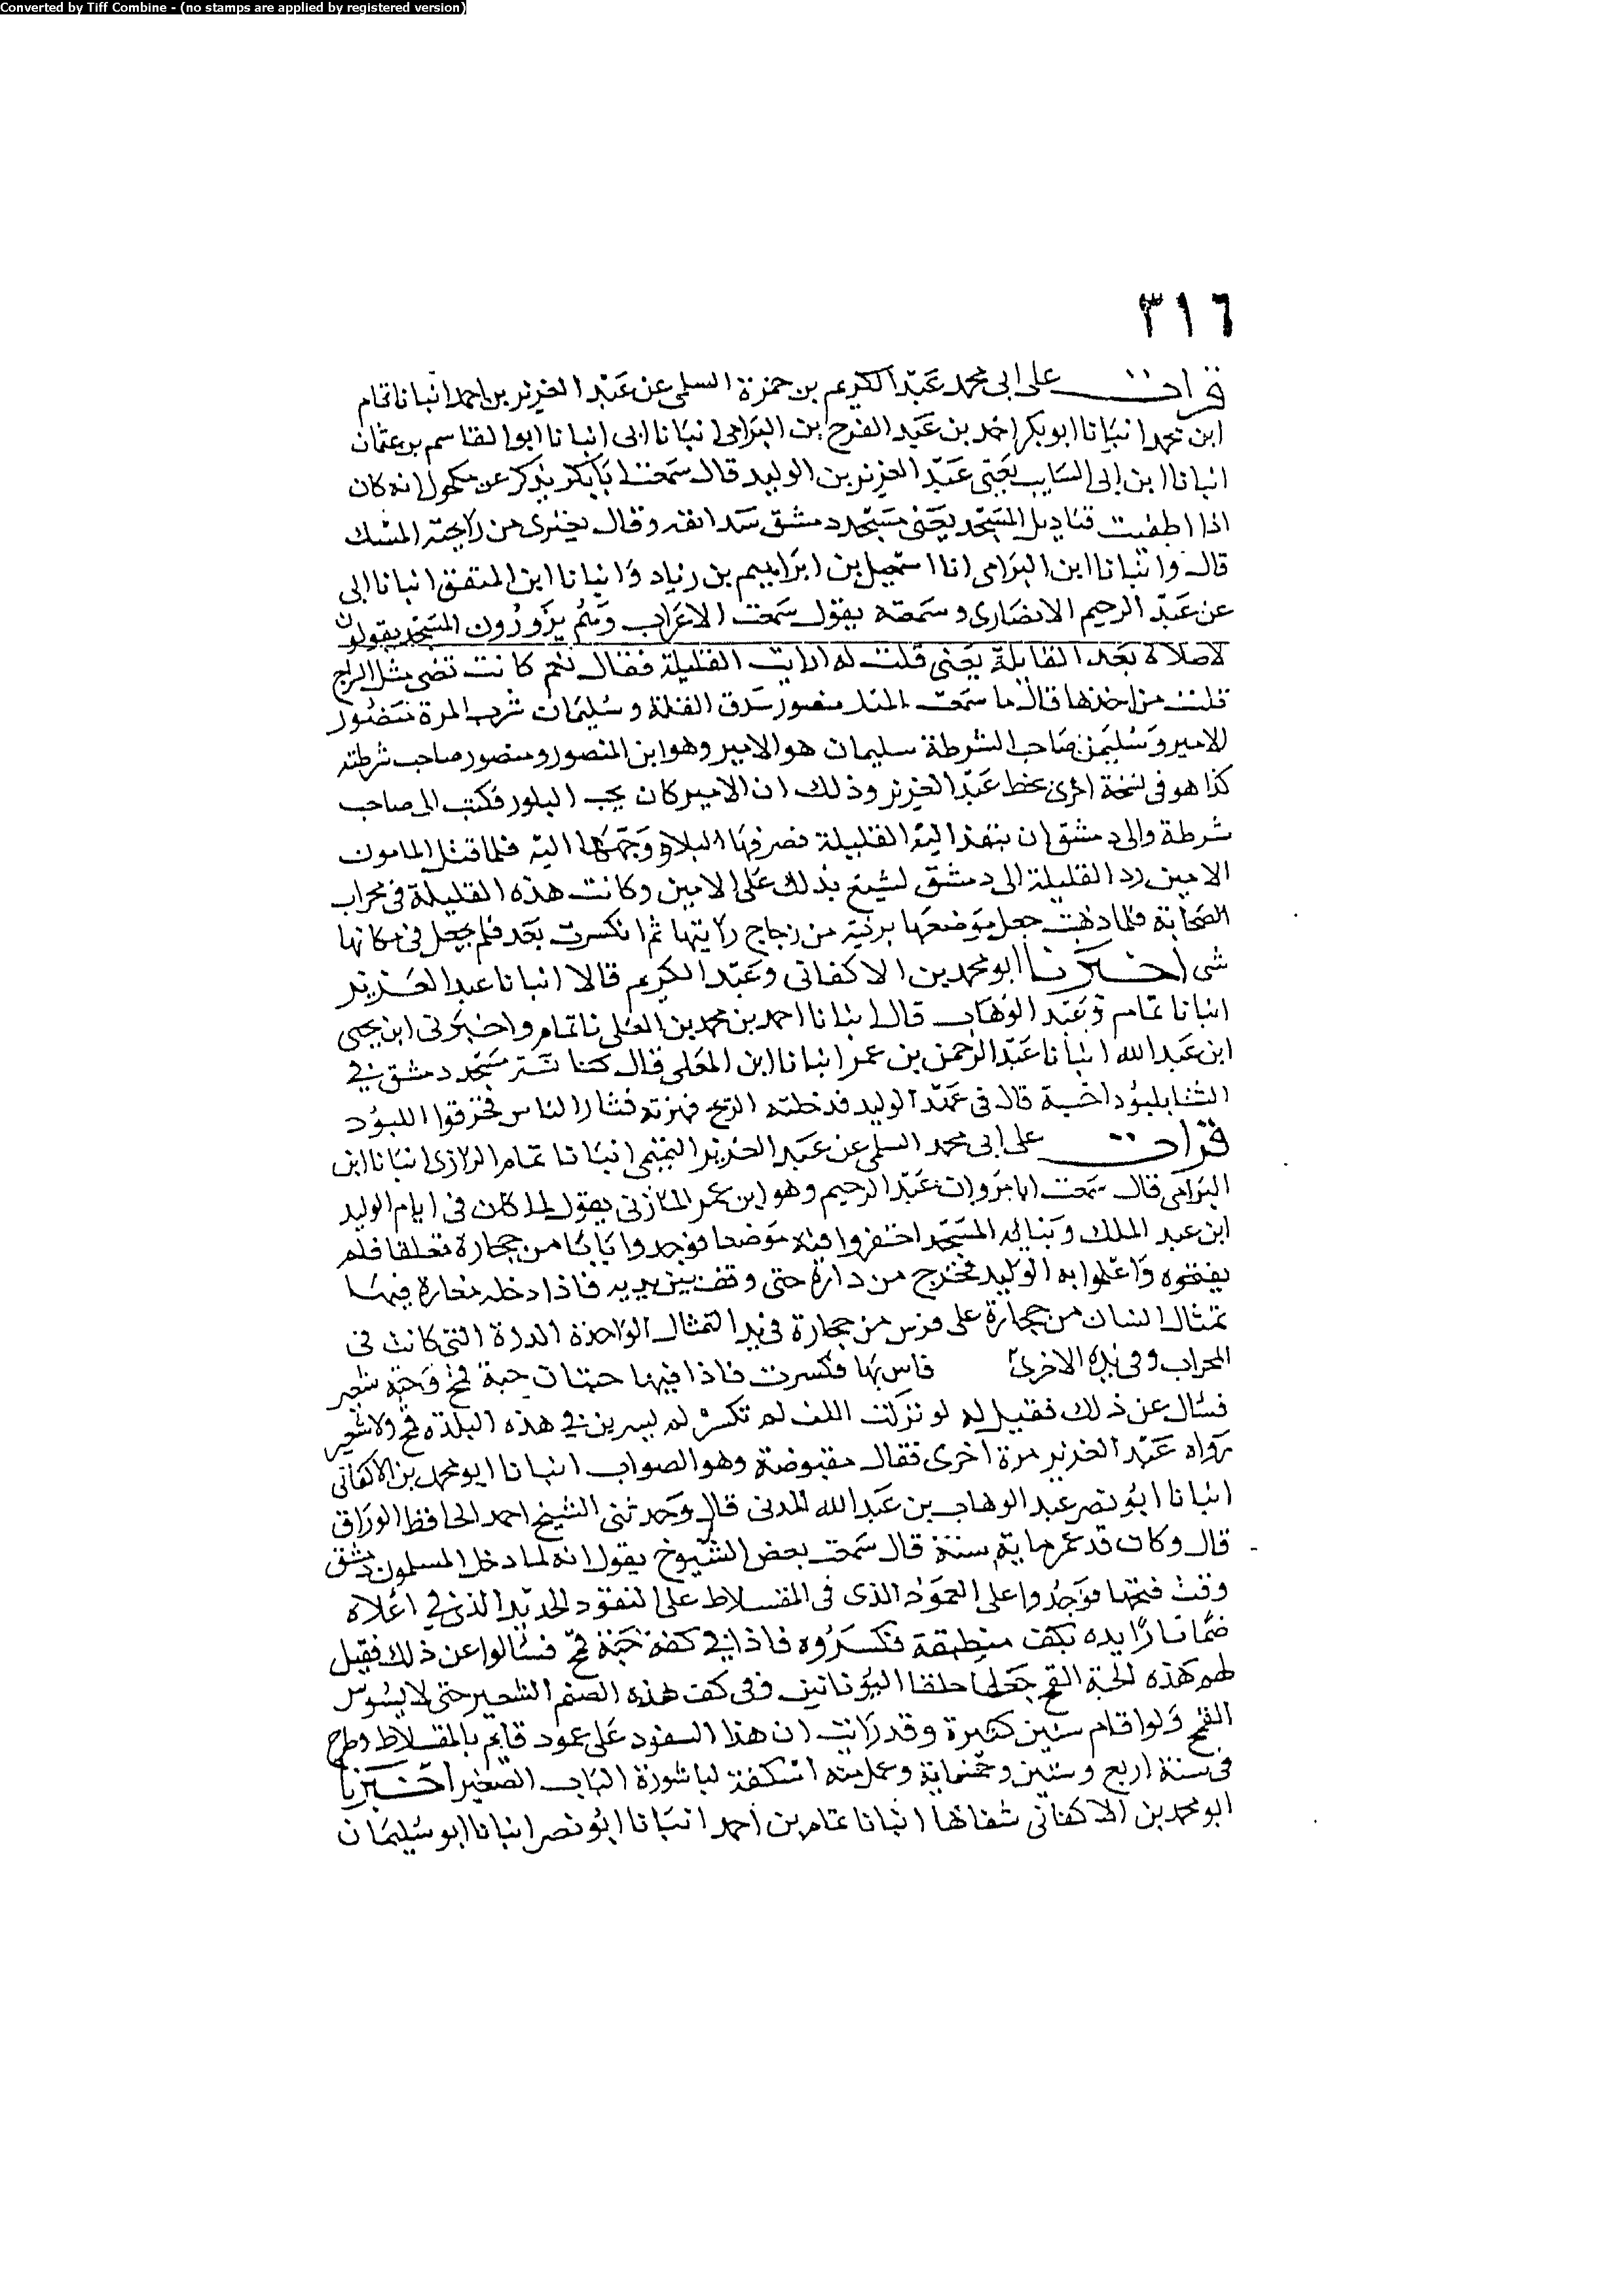 Converted by Tiff Combine - (no stamps are applied by registered version)
٣١٦
قرات على ابى محمد عبد الكريم بن حمزة السلمى عن عبد العزيز بن احمد انبانا تمام
ابن محمد انبانا ابو بكر احمد بن عبد الفرج بن البرامى انبانا ابى انبانا ابو القاسم بن عثمان
انبانا ابن ابى السايب يعنى عبد العزيز بن الوليد قال سمعت ابا بكر يذكر عن مكحول انه كان
اذا اطفيت قناديل المسجد يعنى مسجد دمشق سد انفه وقال يخترى من رايحة المسك
قال وانبانا ابن البرامى انا اسمعيل بن ابراهيم بن زياد وانبانا ابن المتفق انبانا ابى
عن عبد الرحيم الانصارى وسمعته يقول سمعت الاعراب وهم يزورون المسجد يقولون
لا صلاة بعد القايلة يعنى قلت له ارايت القليلة فقال نعم كانت تضى مثل السراج
قلت من اخذها قال ما سمعت المثل منصور سرق القلة وسليمان شرب المرة منصور
الامير وسليمن صاحب الشرطة سليمان هو الامير وهو ابن المنصور ومنصور صاحب شرطته
كذا هو فى نسخة اخرى بخط عبد العزيز وذلك ان الامير كان يحب البلور فكتب الى صاحب
شرطة والى دمشق ان ينفذ اليه القليلة فصرفها البلاد وجهها اليه فلما قتل المامون
الامين رد القليلة الى دمشق ليشنع بذلك على الامين وكانت هذه القليلة فى محراب
الصحابة فلما ذهبت جعل موضعها برنية من زجاج رايتها ثم انكسرت بعد فلم يجعل فى مكانها
شى اخبرنا ابو محمد بن الاكفانى وعبد الكريم قالا انبانا عبد العزيز
انبانا تمام وعبد الوهاب قالا انبانا احمد بن محمد بن المعلى نا تمام واخبرنى ابن يحيى
ابن عبد الله انبانا عبد الرحمن بن عمر انبانا ابن المعلى قال كنا نستر مسجد دمشق في
الشتا بلبود اخسبه قال فى عهد الوليد فدخلته الريح فهزته فثار الناس فخرقوا اللبود
قرات على ابى محمد السلمى عن عبد العزيز التميمى انبانا تمام الرازى انبانا ابن
البرامى قال سمعت ابا مروان عبد الرحيم وهو ابن عمر المازنى يقول لما كان فى ايام الوليد
ابن عبد الملك وبنايه المسجد احتفروا فيه موضعا فوجدوا بابا من حجارة مغلقا فلم
يفتحوه واعلموا به الوليد فخرج من داره حتى وقف بين يديه فاذا دخله مغارة فيها
تمثال انسان من حجارة على فرس من حجارة فى يد التمثال الواحدة الدرة التى كانت فى
المحراب وفى يده الاخرى فاس بها فكسرت فاذا فيها حبتان حبة قمح وحبة شعير
فسال عن ذلك فقيل له لو تركت الكف لم تكسر لم يسرين في هذه البلدة قمح ولا شعير
رواه عبد العزيز مرة اخرى فقال مقبوضة وهو الصواب انبانا ابو محمد بن الاكفانى
انبانا ابو نصر عبد الوهاب بن عبد الله المدنى قال وحدثنى الشيخ احمد الحافظ الوراق
قال وكان قد عمر ماية سنة قال سمعت بعض الشيوخ يقول انه لما دخل المسلمون دمشق
وقت فتحها فوجدوا على العمود الذى فى المقسلاط على السفود الحديد الذى في اعلاه
صنما مادا يده بكف منطبقة فكسروه فاذا في كفه حبة قمح فسالوا عن ذلك فقيل
لهم هذه الحبة القمح جعلها حلفا اليونانين وفى كف هذه الصنم الشعير حتى لا يسوس
القمح ولو اقام سنين كثيرة وقد رايت ان هذا السفود على عمود قايم بالمقسلاط وطرح
فى سنة اربع وستين وخمسماية وعمل منه اسكفة لباشورة الباب الصغير اخبرنا
ابو محمد بن الاكفانى شفاها انبانا تمام بن احمد انبانا ابو نصر انبانا ابو سليمان